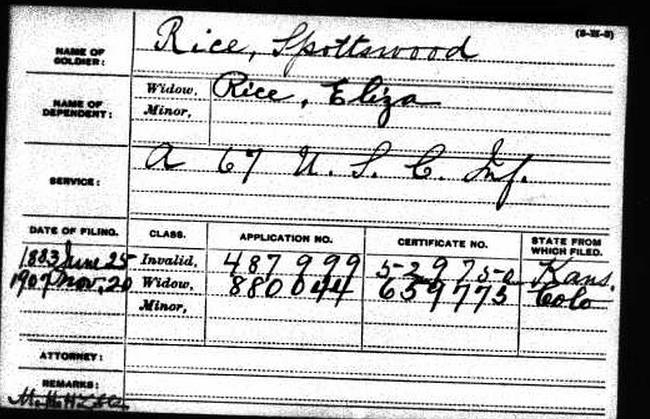 (3-M-3)
NAME OF SOLDIER: Rice, Spottswood
NAME OF DEPENDENT: Widow, Rice, Eliza
Minor,
SERVICE: A 67 U. S. C. Inf.
DATE OF FILING. CLASS. APPLICATION NO. CERTIFICATE NO. STATE FROM WHICH FILED.
1883 June 25 Invalid, 487 999 529750 Kans.
1907 Nov. 20 Widow, 880044 659775 Colo
Minor,
ATTORNEY:
REMARKS: